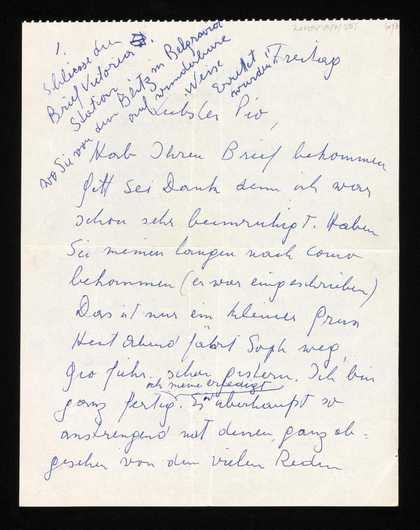 1.
Schliesse den
Brief Victoria
Station
wo Sie von dem Blitz in Belgravia
auf wunderbare
Weise
errettet
wurden!
Freitag
Liebster Pio,
Hab Ihren Brief bekommen
Gott sei Dank denn ich war
schon sehr beunruhigt. Haben
Sie meinen langen nach Como
bekommen (er war eingeschrieben)
Das ist nur ein kleiner Gruss
Heut Abend fährt Soph weg,
Gio fuhr schon gestern. Ich bin
ganz fertig.
ich meine erledigt
Es überhaupt so
anstrengend mit denen, ganz ab-
gesehen von den vielen Reden